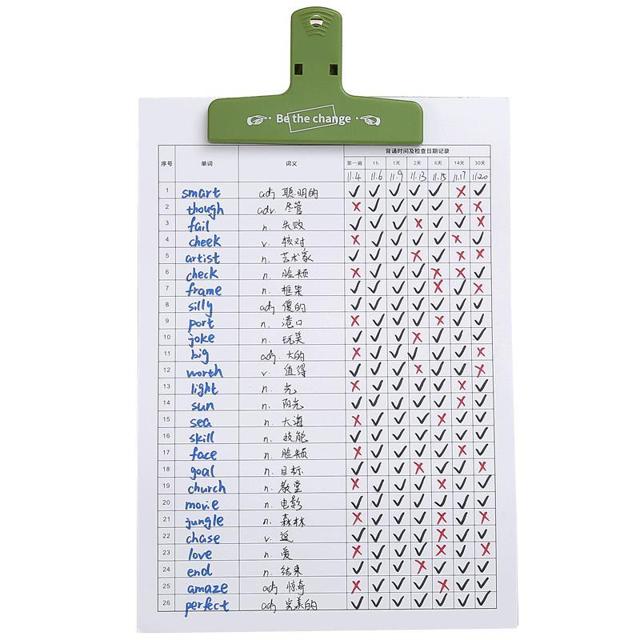 Be the change
序号 单词 词义 背诵时间及检查日期记录
第一遍 1h 1天 2天 6天 14天 30天
11.4 11.6 11.9 11.13 11.15 11.17 11.20
1 smart adj 聪明的 ✓ ✓ ✓ ✓ ✓ ✗ ✓
2 though adv. 尽管 ✗ ✓ ✓ ✓ ✓ ✗ ✗
3 fail n. 失败 ✓ ✓ ✓ ✗ ✓ ✓ ✗
4 cheek v. 核对 ✗ ✓ ✓ ✓ ✓ ✗ ✓
5 artist n. 艺术家 ✓ ✓ ✓ ✗ ✓ ✗ ✗
6 check n. 脸颊 ✗ ✓ ✓ ✓ ✗ ✗ ✓
7 frame n. 框架 ✓ ✓ ✓ ✓ ✗ ✓ ✗
8 silly adj 傻的 ✓ ✓ ✓ ✓ ✓ ✓ ✓
9 port n. 港口 ✗ ✓ ✓ ✓ ✗ ✓ ✓
10 joke n. 玩笑 ✓ ✓ ✓ ✗ ✓ ✓ ✓
11 big adj. 大的 ✗ ✓ ✓ ✓ ✓ ✓ ✗
12 worth v. 值得 ✓ ✓ ✓ ✗ ✓ ✓ ✗
13 light n. 光 ✗ ✓ ✓ ✓ ✓ ✗ ✓
14 sun n. 阳光 ✓ ✓ ✓ ✓ ✓ ✗ ✓
15 sea n. 大海 ✗ ✓ ✓ ✓ ✗ ✓ ✓
16 skill n. 技能 ✓ ✓ ✓ ✓ ✓ ✓ ✓
17 face n. 脸颊 ✗ ✓ ✓ ✓ ✓ ✗ ✓
18 goal n. 目标 ✓ ✓ ✓ ✗ ✓ ✓ ✗
19 church n. 教堂 ✗ ✓ ✓ ✓ ✗ ✓ ✓
20 movie n. 电影 ✓ ✓ ✓ ✓ ✓ ✓ ✓
21 jungle n. 森林 ✗ ✓ ✓ ✓ ✗ ✓ ✗
22 chase v. 追 ✓ ✓ ✓ ✓ ✗ ✓ ✓
23 love n. 爱 ✗ ✓ ✓ ✓ ✗ ✓ ✗
24 end n. 结果 ✓ ✓ ✓ ✗ ✓ ✓ ✓
25 amaze adj 惊奇 ✗ ✓ ✓ ✓ ✗ ✓ ✓
26 perfect adj 完美的 ✓ ✓ ✓ ✓ ✓ ✓ ✓